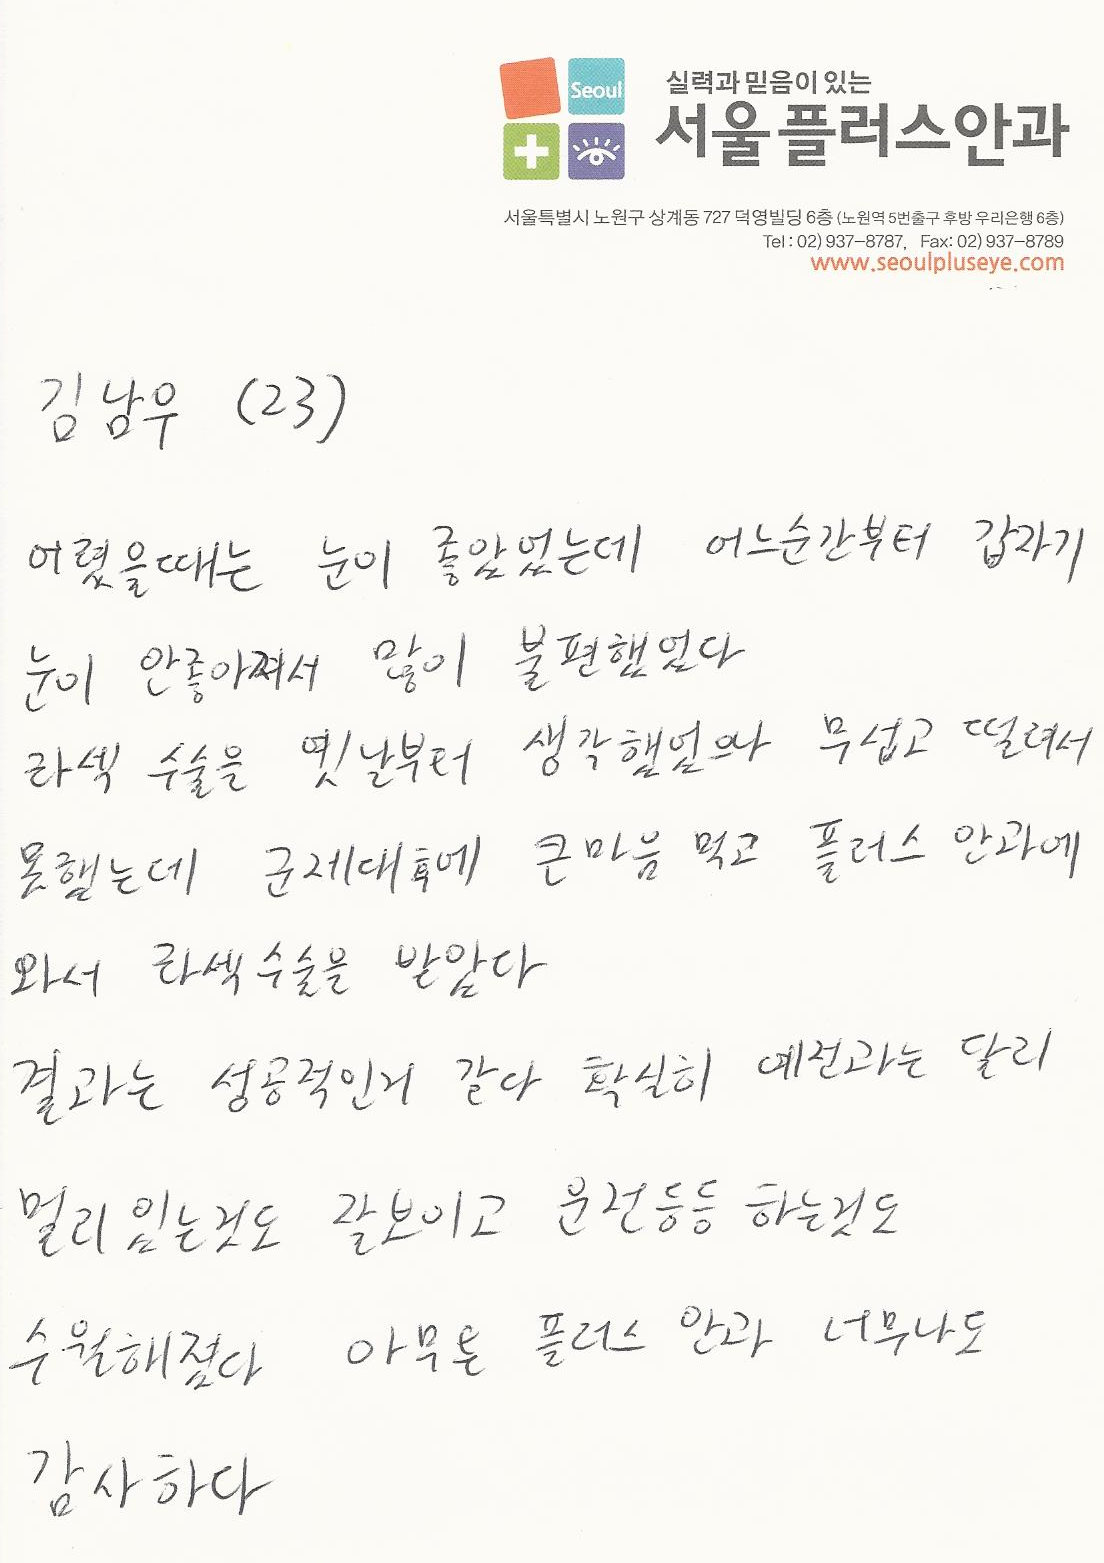 Seoul
실력과 믿음이 있는
서울플러스안과
서울특별시 노원구 상계동 727 덕영빌딩 6층 (노원역 5번출구 후방 우리은행 6층)
Tel : 02) 937-8787,  Fax: 02) 937-8789
www.seoulpluseye.com
김남우 (23)
어렸을때는 눈이 좋았었는데 어느순간부터 갑자기
눈이 안좋아쪄서 많이 불편했었다
라섹 수술을 옛날부터 생각했었으나 무섭고 떨려서
못했는데 군제대후에 큰마음 먹고 플러스 안과에
와서 라섹수술을 받았다
결과는 성공적인거 같다 확실히 예전과는 달리
멀리 있는것도 잘보이고 운전등등 하는것도
수월해졌다 아무튼 플러스 안과 너무나도
감사하다